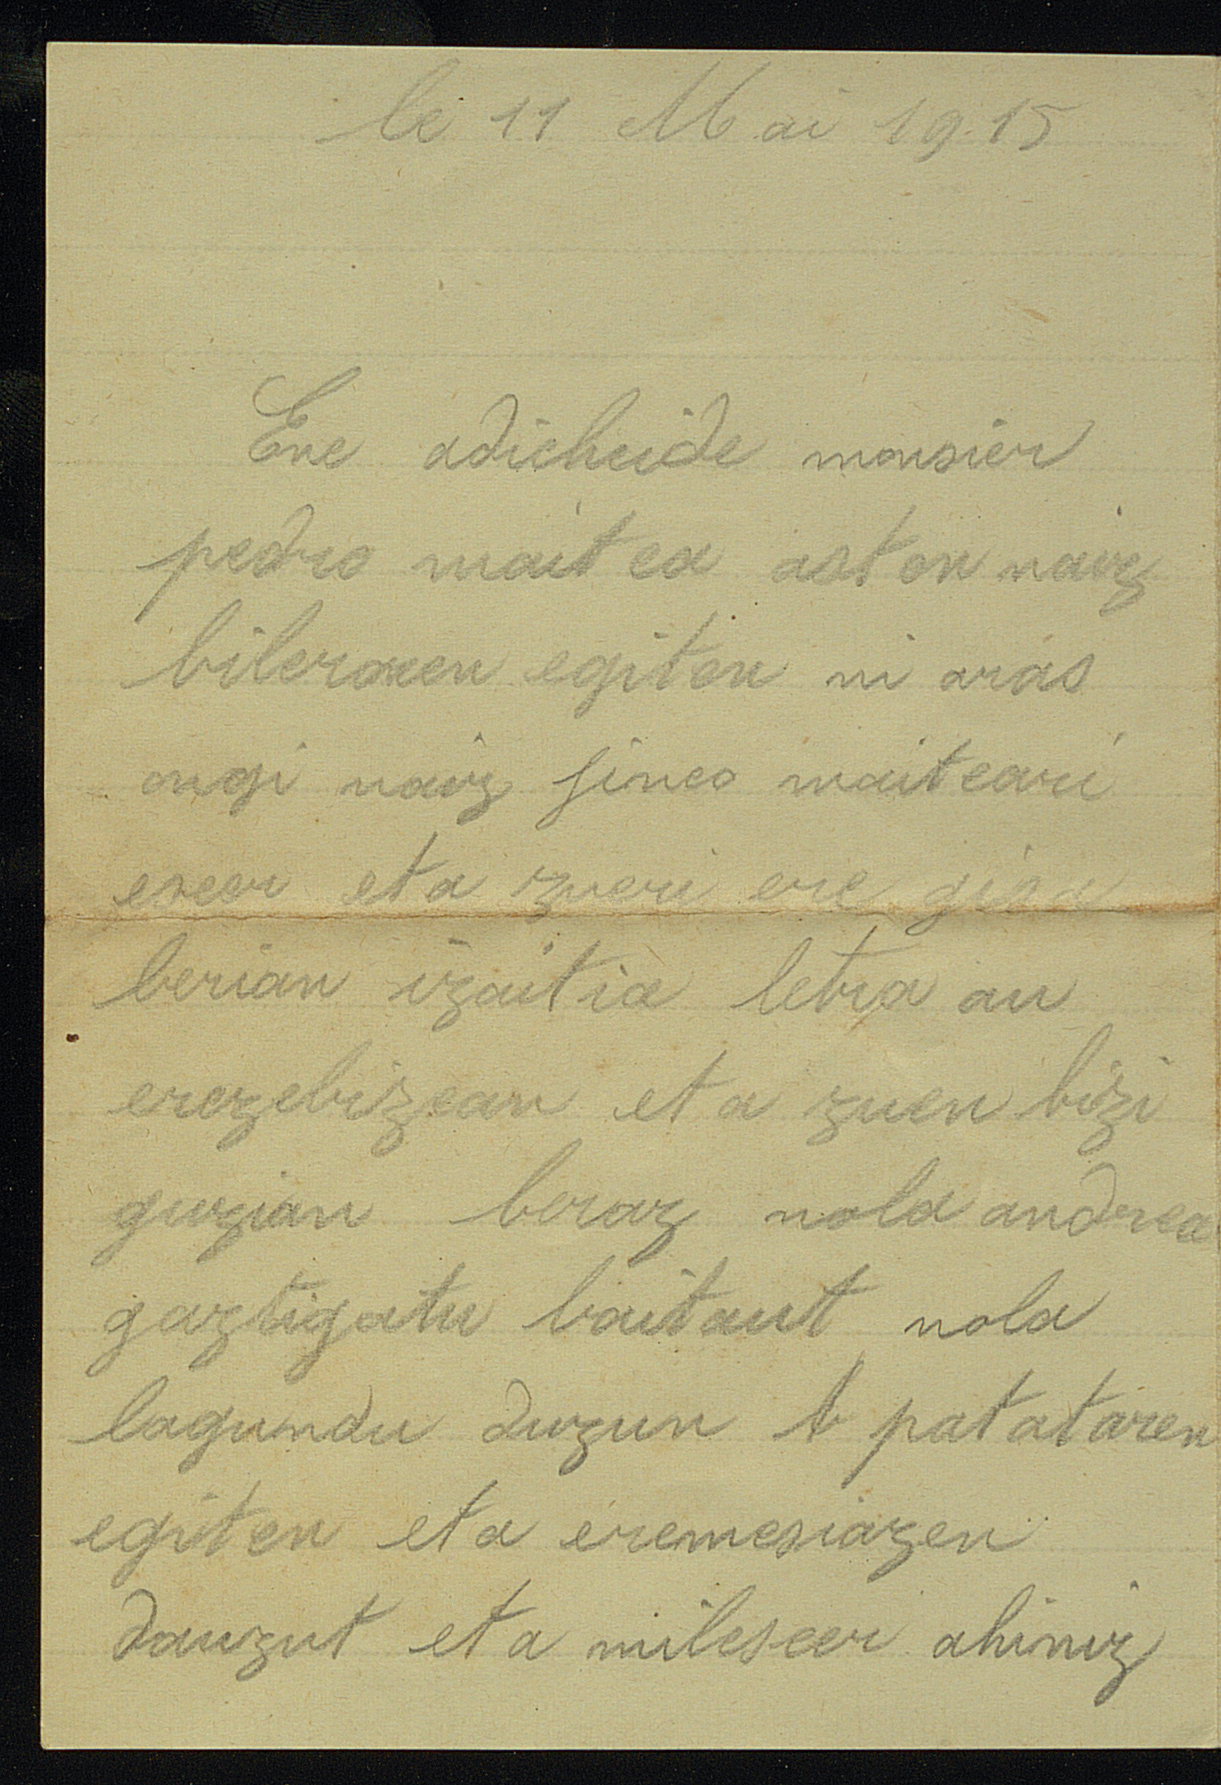 le 11 Mai 1915
Ene adicheide monsier
pedro maitea asten naiz
bileraren egiten ni aras
ongi naiz jinco maiteari
esker eta zueri ere gisa
berian izaitia letra au
erezebizean eta zuen bizi
guzian beraz nola andrea
gaztigatu baitaut nola
lagundu duzun patataren
egiten eta eremesiazen
dauzut eta milesker ahiniz